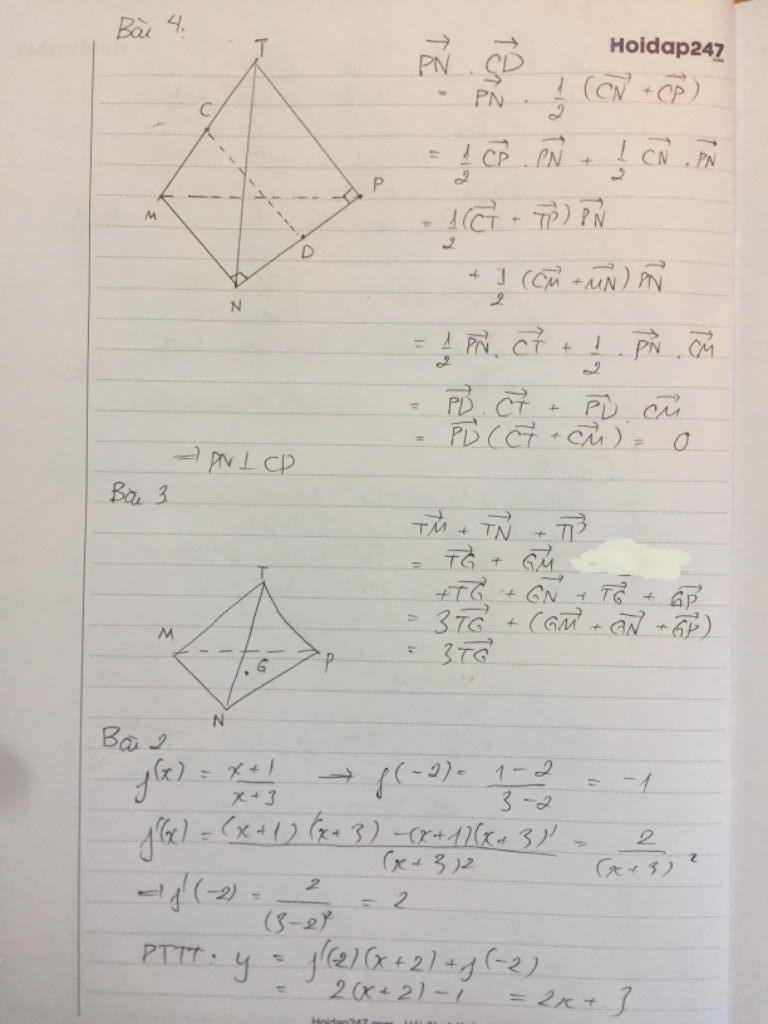 Bài 4.
Hoidap247
T
C
M
P
D
N
→PN . →CD
= →PN . 1/2 (→CN + →CP)
= 1/2 →CP . →PN + 1/2 →CN . →PN
= 1/2 (→CT + →TP) →PN
+ 1/2 (→CM + →MN) →PN
= 1/2 →PN . →CT + 1/2 . →PN . →CM
= →PD . →CT + →PD . →CM
= →PD (→CT + →CM) = 0
⇒ PN ⊥ CD
Bài 3
T
M
G
P
N
→TM + →TN + →TP
= →TG + →GM
+ →TG + →GN + →TG + →GP
= 3→TG + (→GM + →GN + →GP)
= 3→TG
Bài 2
f(x) = (x+1)/(x+3) → f(-2) = (1-2)/(3-2) = -1
f'(x) = ((x+1)'(x+3) - (x+1)(x+3)')/(x+3)2 = 2/(x+3)²
⇒ f'(-2) = 2/(3-2)² = 2
PTTT. y = f'(2)(x+2) + f(-2)
= 2(x+2) - 1 = 2x + 3